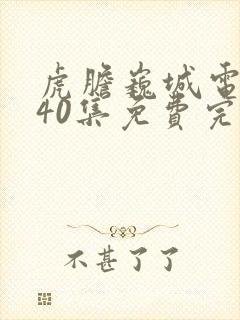 虎膽巍城電
40集免費完
不甚了了